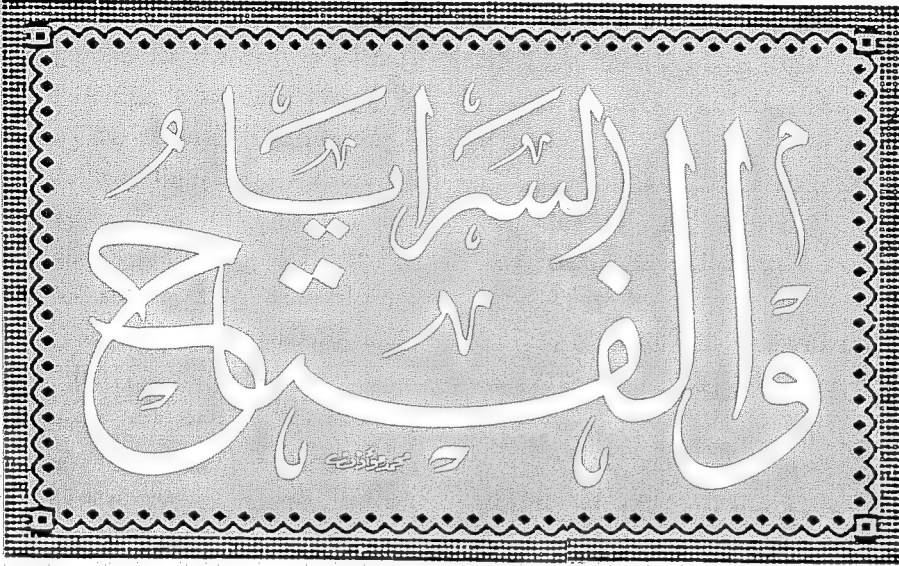 السرايا
والفتوح